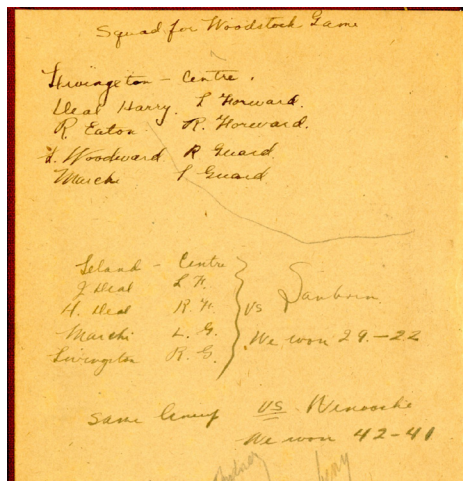 Squad for Woodstock Game
Livingston - Centre.
Deal Harry. L Forward.
R Eaton R. Forward.
L. Woodward R Guard.
Marchi L Guard
Leland - Centre
J Deal L F.
H. Deal R. F.
Marchi L. G.
Livingston R. G.
vs Sanborn
We won 29-22
Same lineup vs Winooski
We won 42-41